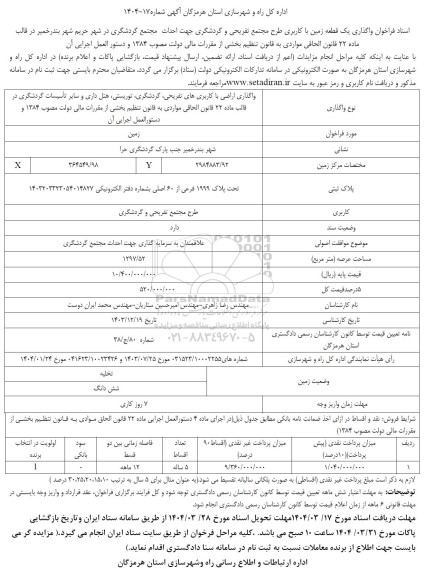 اداره کل راه و شهرسازی استان هرمزگان آگهی شماره۱۷-۱۴۰۴
اسناد فراخوان واگذاری یک قطعه زمین با کاربری طرح مجتمع تفریحی و گردشگری جهت احداث مجتمع گردشگری در شهر حریم شهر بندرخمیر در قالب
ماده ۲۲ قانون الحاقی مواردی به قانون تنظیم بخشی از مقررات مالی دولت مصوب ۱۳۸۴ و دستور العمل اجرایی آن
با عنایت به اینکه کلیه مراحل انجام مزایدات (اعم از دریافت اسناد ارائه تضمین، ارسال پیشنهاد قیمت، بازگشایی پاکات و اعلام برنده) در اداره کل راه و
شهرسازی استان هرمزگان به صورت الکترونیکی در سامانه تدارکات الکترونیکی دولت (ستاد) برگزار می گردد، متقاضیان محترم بایستی جهت ثبت نام در سامانه
مذکور و دریافت نام کاربری و رمز عبور به سایت www.setadiran.ir مراجعه فرمایند.
نوع واگذاری
واگذاری اراضی با کاربری های تفریحی، گردشگری، توریستی، هتل داری و سایر تأسیسات گردشگری در
قالب ماده ۲۲ قانون الحاقی مواردی به قانون تنظیم بخشی از مقررات مالی دولت مصوب ۱۳۸۴ و
دستورالعمل اجرایی آن
مورد فراخوان
زمین
نشانی
شهر بندرخمیر جنب پارک گردشگری حرا
مختصات مرکز زمین
۲۹۸۴۸۸۳/۹۲ Y ۳۶۴۵۴۹/۹۸ X
پلاک ثبتی
تحت پلاک ۱۹۹۹ فرعی از ۶۰ اصلی بشماره دفتر الکترونیکی ۱۴۰۳۲۰۳۲۳۰۵۴۰۱۴۸۲۷
کاربری
طرح مجتمع تفریحی و گردشگری
وضعیت سند
دارد
موضوع موافقت اصولی
علاقمندان به سرمایه گذاری جهت احداث مجتمع گردشگری
مساحت عرصه (متر مربع)
۱۲۹۷/۵۲
قیمت پایه (ریال)
۱۰/۴۰۰/۰۰۰/۰۰۰
۵درصدقیمت کل
۵۲۰/۰۰۰/۰۰۰
نام کارشناسان
مهندس رضا زاهری-مهندس امیرحسین ستاریان-مهندس محمد ایران دوست
تاریخ کارشناسی
تاریخ ۱۴۰۳/۱۲/۱۹
نامه تعیین قیمت توسط کانون کارشناسان رسمی دادگستری
استان هرمزگان
شماره ۸۰/ج/۳۸
رأی هیأت نمایندگی اداره کل راه و شهرسازی
شماره های ۰۳۱۵۲۳/۱۰۰۰۲۲۵۵ مورخ ۱۴۰۳/۰۷/۲۵ و ۰۴۱۶۲۳/۱۰۰۲۳۴۲۶ مورخ ۱۴۰۴/۰۱/۲۴
وضعیت زمین
تخلیه
شش دانگ
مهلت زمان واریز وجه
۷ روز کاری
شرایط فروش: نقد و اقساط در ازای اخذ ضمانت نامه بانکی مطابق جدول ذیل(در اجرای ماده ۴ دستورالعمل اجرایی ماده ۲۲ قانون الحاق مـوادی بـه قـانون تنظیـم بخشـی از
مقررات مالی دولت مصوب ۱۳۸۴)
ردیف میزان پرداخت نقدی (پیش پرداخت)(۱۰درصد) میزان پرداخت غیر نقدی (اقساط) ۹۰ درصد تعداد اقساط فاصله زمانی بین دو قسط سود بانکی اولویت در انتخاب برنده
۱ ۱/۰۴۰/۰۰۰/۰۰۰ ۹/۳۶۰/۰۰۰/۰۰۰ ۵ ساله ۱۲ ماهه ۰ ۱
لازم به ذکر است مبلغ پرداخت غیر نقدی (اقساطی) به صورت پلکانی سالیانه تقسیط می شود.(به عنوان مثال برای ۵ سال به ترتیب ۱۰،۱۵،۲۰،۲۵،۳۰ درصد )
توضیحات: به مهلت اعتبار شش ماهه تعیین قیمت توسط کانون کارشناسان رسمی دادگستری توجه شود و کل فرایند برگزاری فراخوان، عقد قرارداد و واریز وجه بایستی در
مهلت قانونی ۶ ماهه از زمان اعلام قیمت توسط کانون کارشناسان رسمی دادگستری انجام شود.
مهلت دریافت اسناد مورخ ۱۷/ ۱۴۰۴/۰۳مهلت تحویل اسناد مورخ ۲۸/ ۱۴۰۴/۰۳ از طریق سامانه ستاد ایران وتاریخ بازگشایی
پاکات مورخ ۱۴۰۴/۰۳/۳۱ ساعت ۱۰ صبح می باشد. .کلیه مراحل فرخوان از طریق سایت ستاد ایران انجام می گیرد.( مزایده گر می
بایست جهت اطلاع از برنده معاملات نسبت به ثبت نام در سامانه سنا دادگستری اقدام نماید.)
اداره ارتباطات و اطلاع رسانی راه وشهرسازی استان هرمزگان